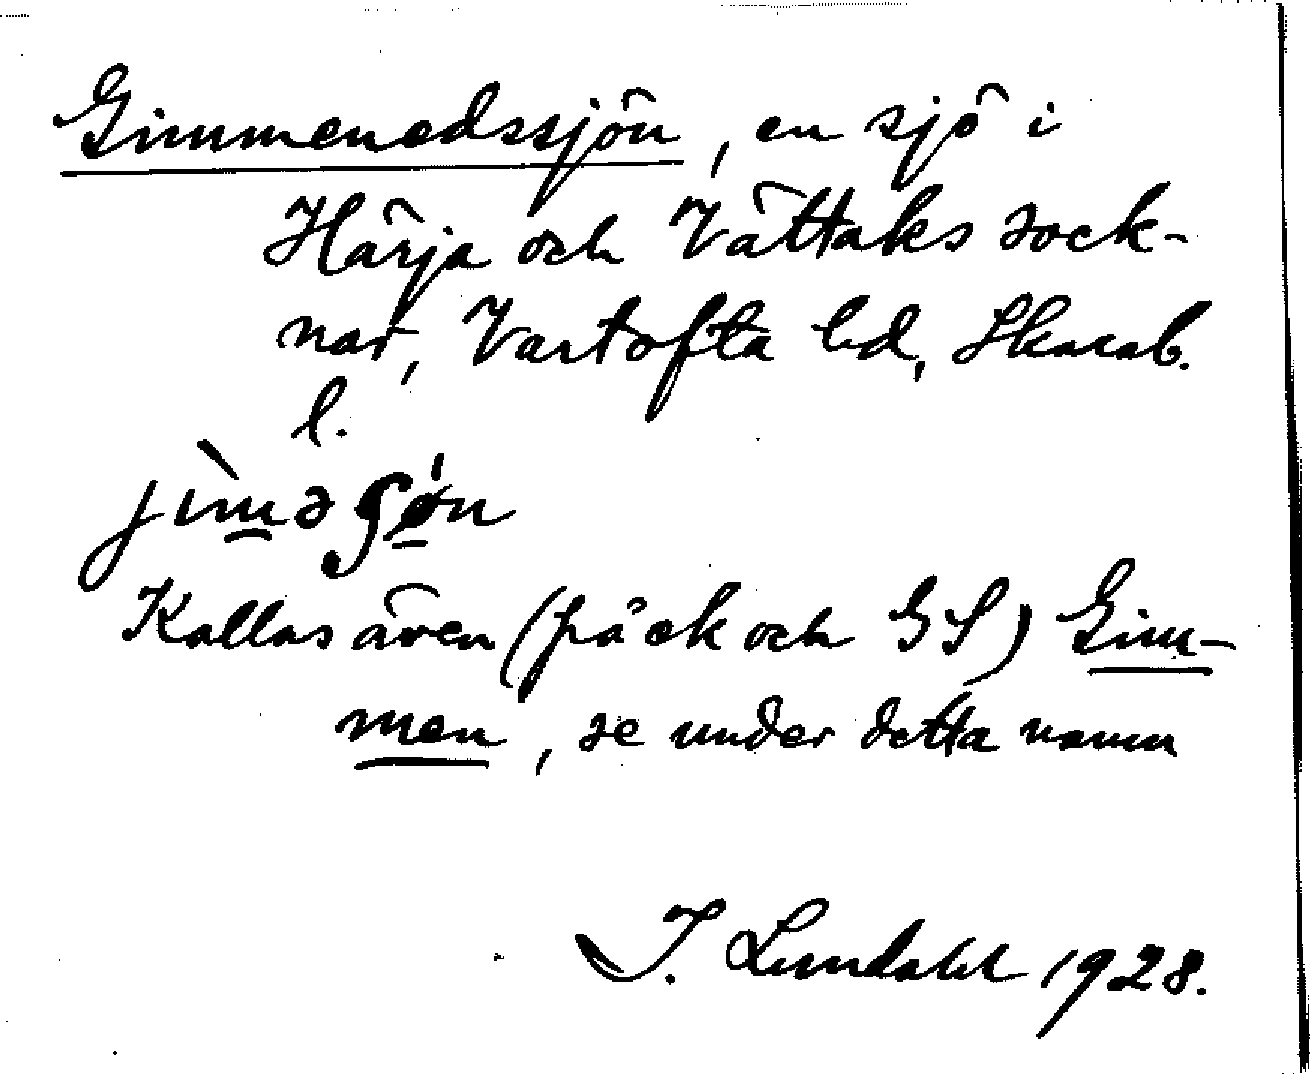 Gimmenedssjön, en sjö i
Härja och Vättaks sock-
nar, Vartofta hd, Skarab.
l.
Kallas även (på ek och GS) Gim-
men, se under detta namn
I. Lundahl 1928.